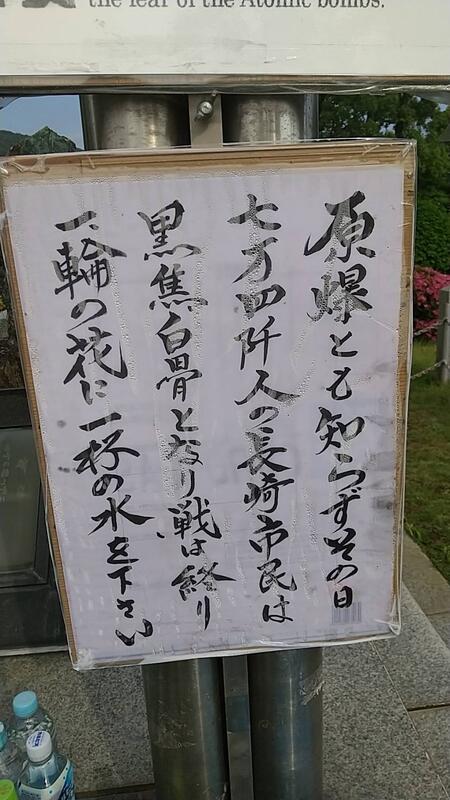 the fear of the Atomic bombs.
原爆とも知らずその日
七万四阡人の長崎市民は
黒焦白骨となり戦は終り
一輪の花に一杯の水を下さい